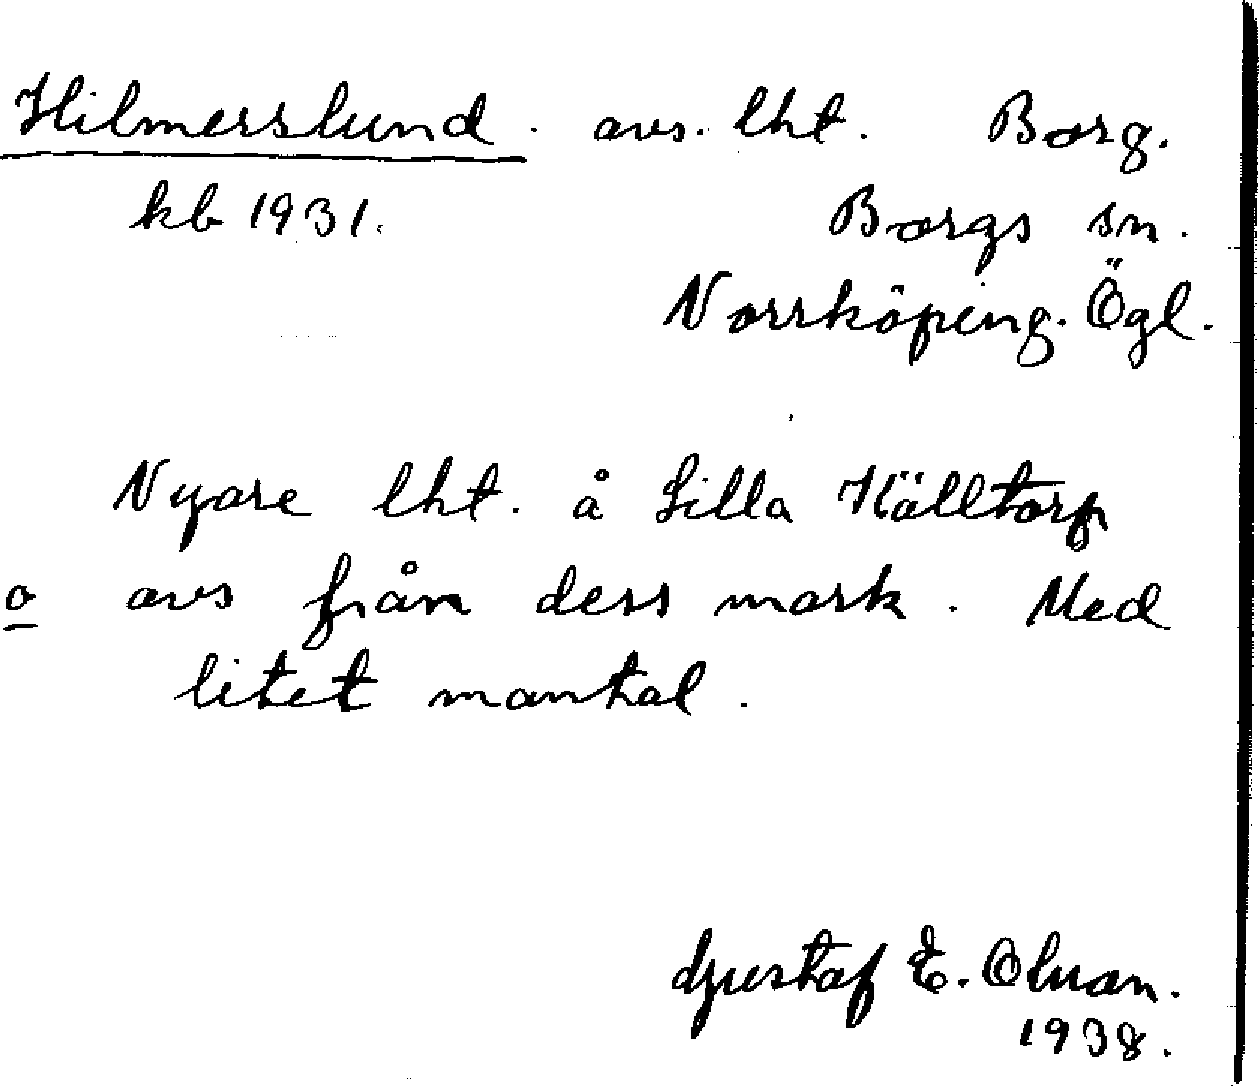 Hilmerslund. avs. lht. Borg.
kb 1931. Borgs sn.
Norrköping. Ögl.
Nyare lht. å Lilla Källtorp
o avs från dess mark. Med
litet mantal.
Gustaf E. Olsson.
1938.